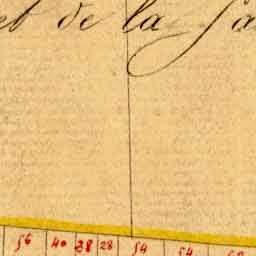 et de la
56 40 28 28 54 54